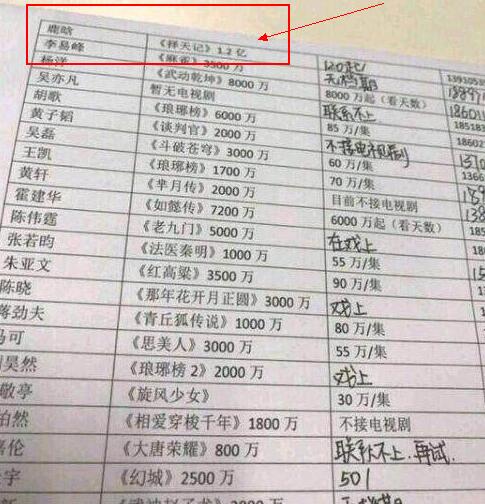 鹿晗 《择天记》1.2 亿 120起/
李易峰 《麻雀》3500 万 无档期
杨洋 《武动乾坤》8000 万 8000 万起（看天数）
吴亦凡 暂无电视剧 联系不上
胡歌 《琅琊榜》6000 万 85 万/集
黄子韬 《谈判官》2000 万 不接电视剧
吴磊 《斗破苍穹》3000 万 60 万/集
王凯 《琅琊榜》1700 万 70 万/集
黄轩 《芈月传》2000 万 目前不接电视剧
霍建华 《如懿传》7200 万 6000 万起（看天数）
陈伟霆 《老九门》5000 万 在戏上
张若昀 《法医秦明》1000 万 55 万/集
朱亚文 《红高粱》3500 万 90 万/集
陈晓 《那年花开月正圆》3000 万 戏上
蒋劲夫 《青丘狐传说》1000 万 80 万/集
马可 《思美人》3000 万 55 万/集
昊然 《琅琊榜 2》2000 万 戏上
敬亭 《旋风少女》 30 万/集
泊然 《相爱穿梭千年》1800 万 不接电视剧
伦 《大唐荣耀》800 万 联系不上，再试.
宇 《幻城》2500 万 501